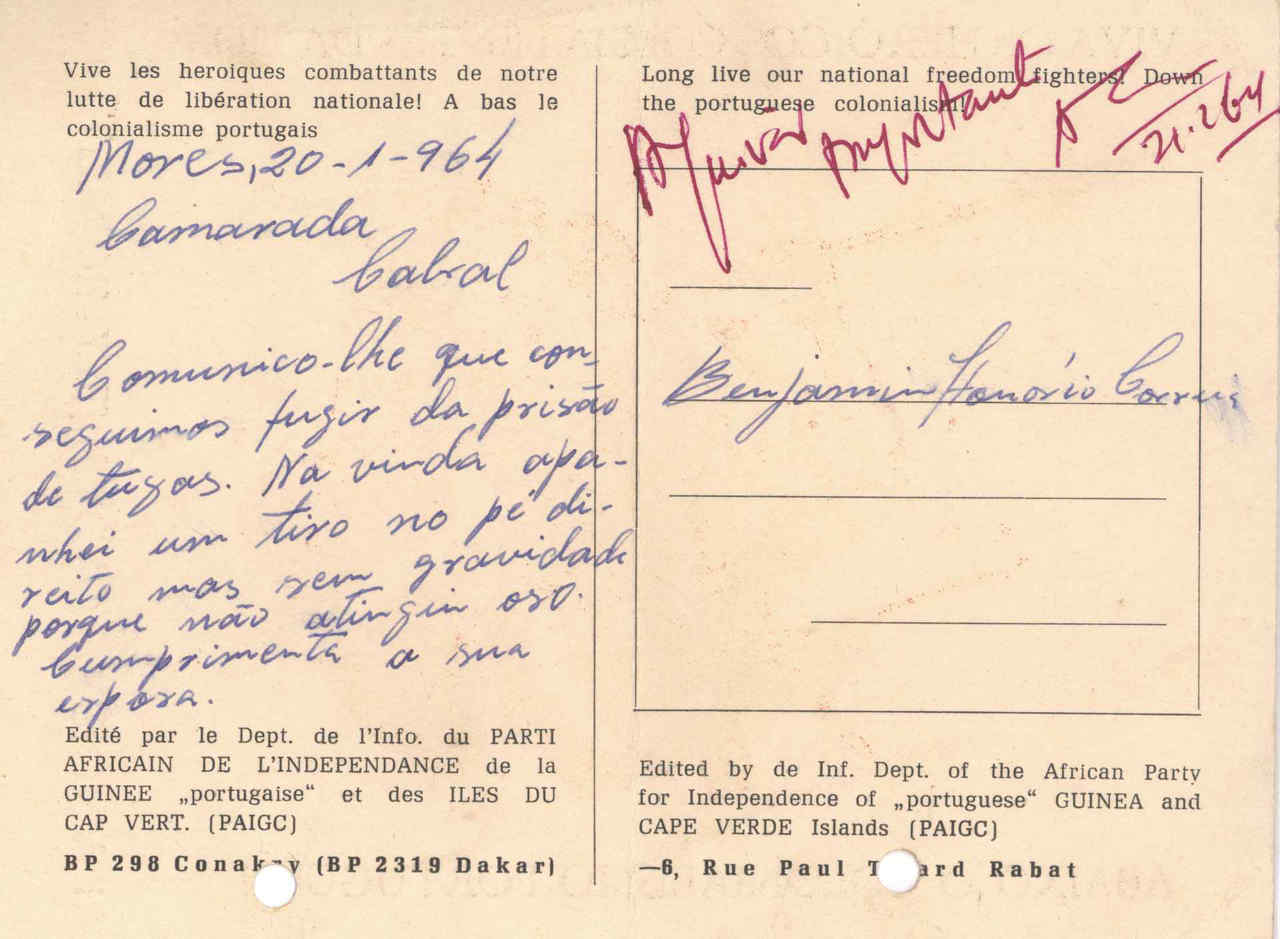 Vive les heroiques combattants de notre
lutte de libération nationale! A bas le
colonialisme portugais
Mores, 20-1-964
Camarada
Cabral
Comunico-lhe que con-
seguimos fugir da prisão
de tugas. Na vinda apa-
nhei um tiro no pé di-
reito mas sem gravidade
porque não atingiu oso.
Cumprimenta a sua
esposa.
Edité par le Dept. de l'Info. du PARTI
AFRICAIN DE L'INDEPENDANCE de la
GUINEE „portugaise“ et des ILES DU
CAP VERT. (PAIGC)
BP 298 Conakry (BP 2319 Dakar)
Long live our national freedom fighters! Down
the portuguese colonialism!
Arquivar
importante
21.2.64
Benjamim Honório Correia
Edited by de Inf. Dept. of the African Party
for Independence of „portuguese“ GUINEA and
CAPE VERDE Islands (PAIGC)
—6, Rue Paul Rabat